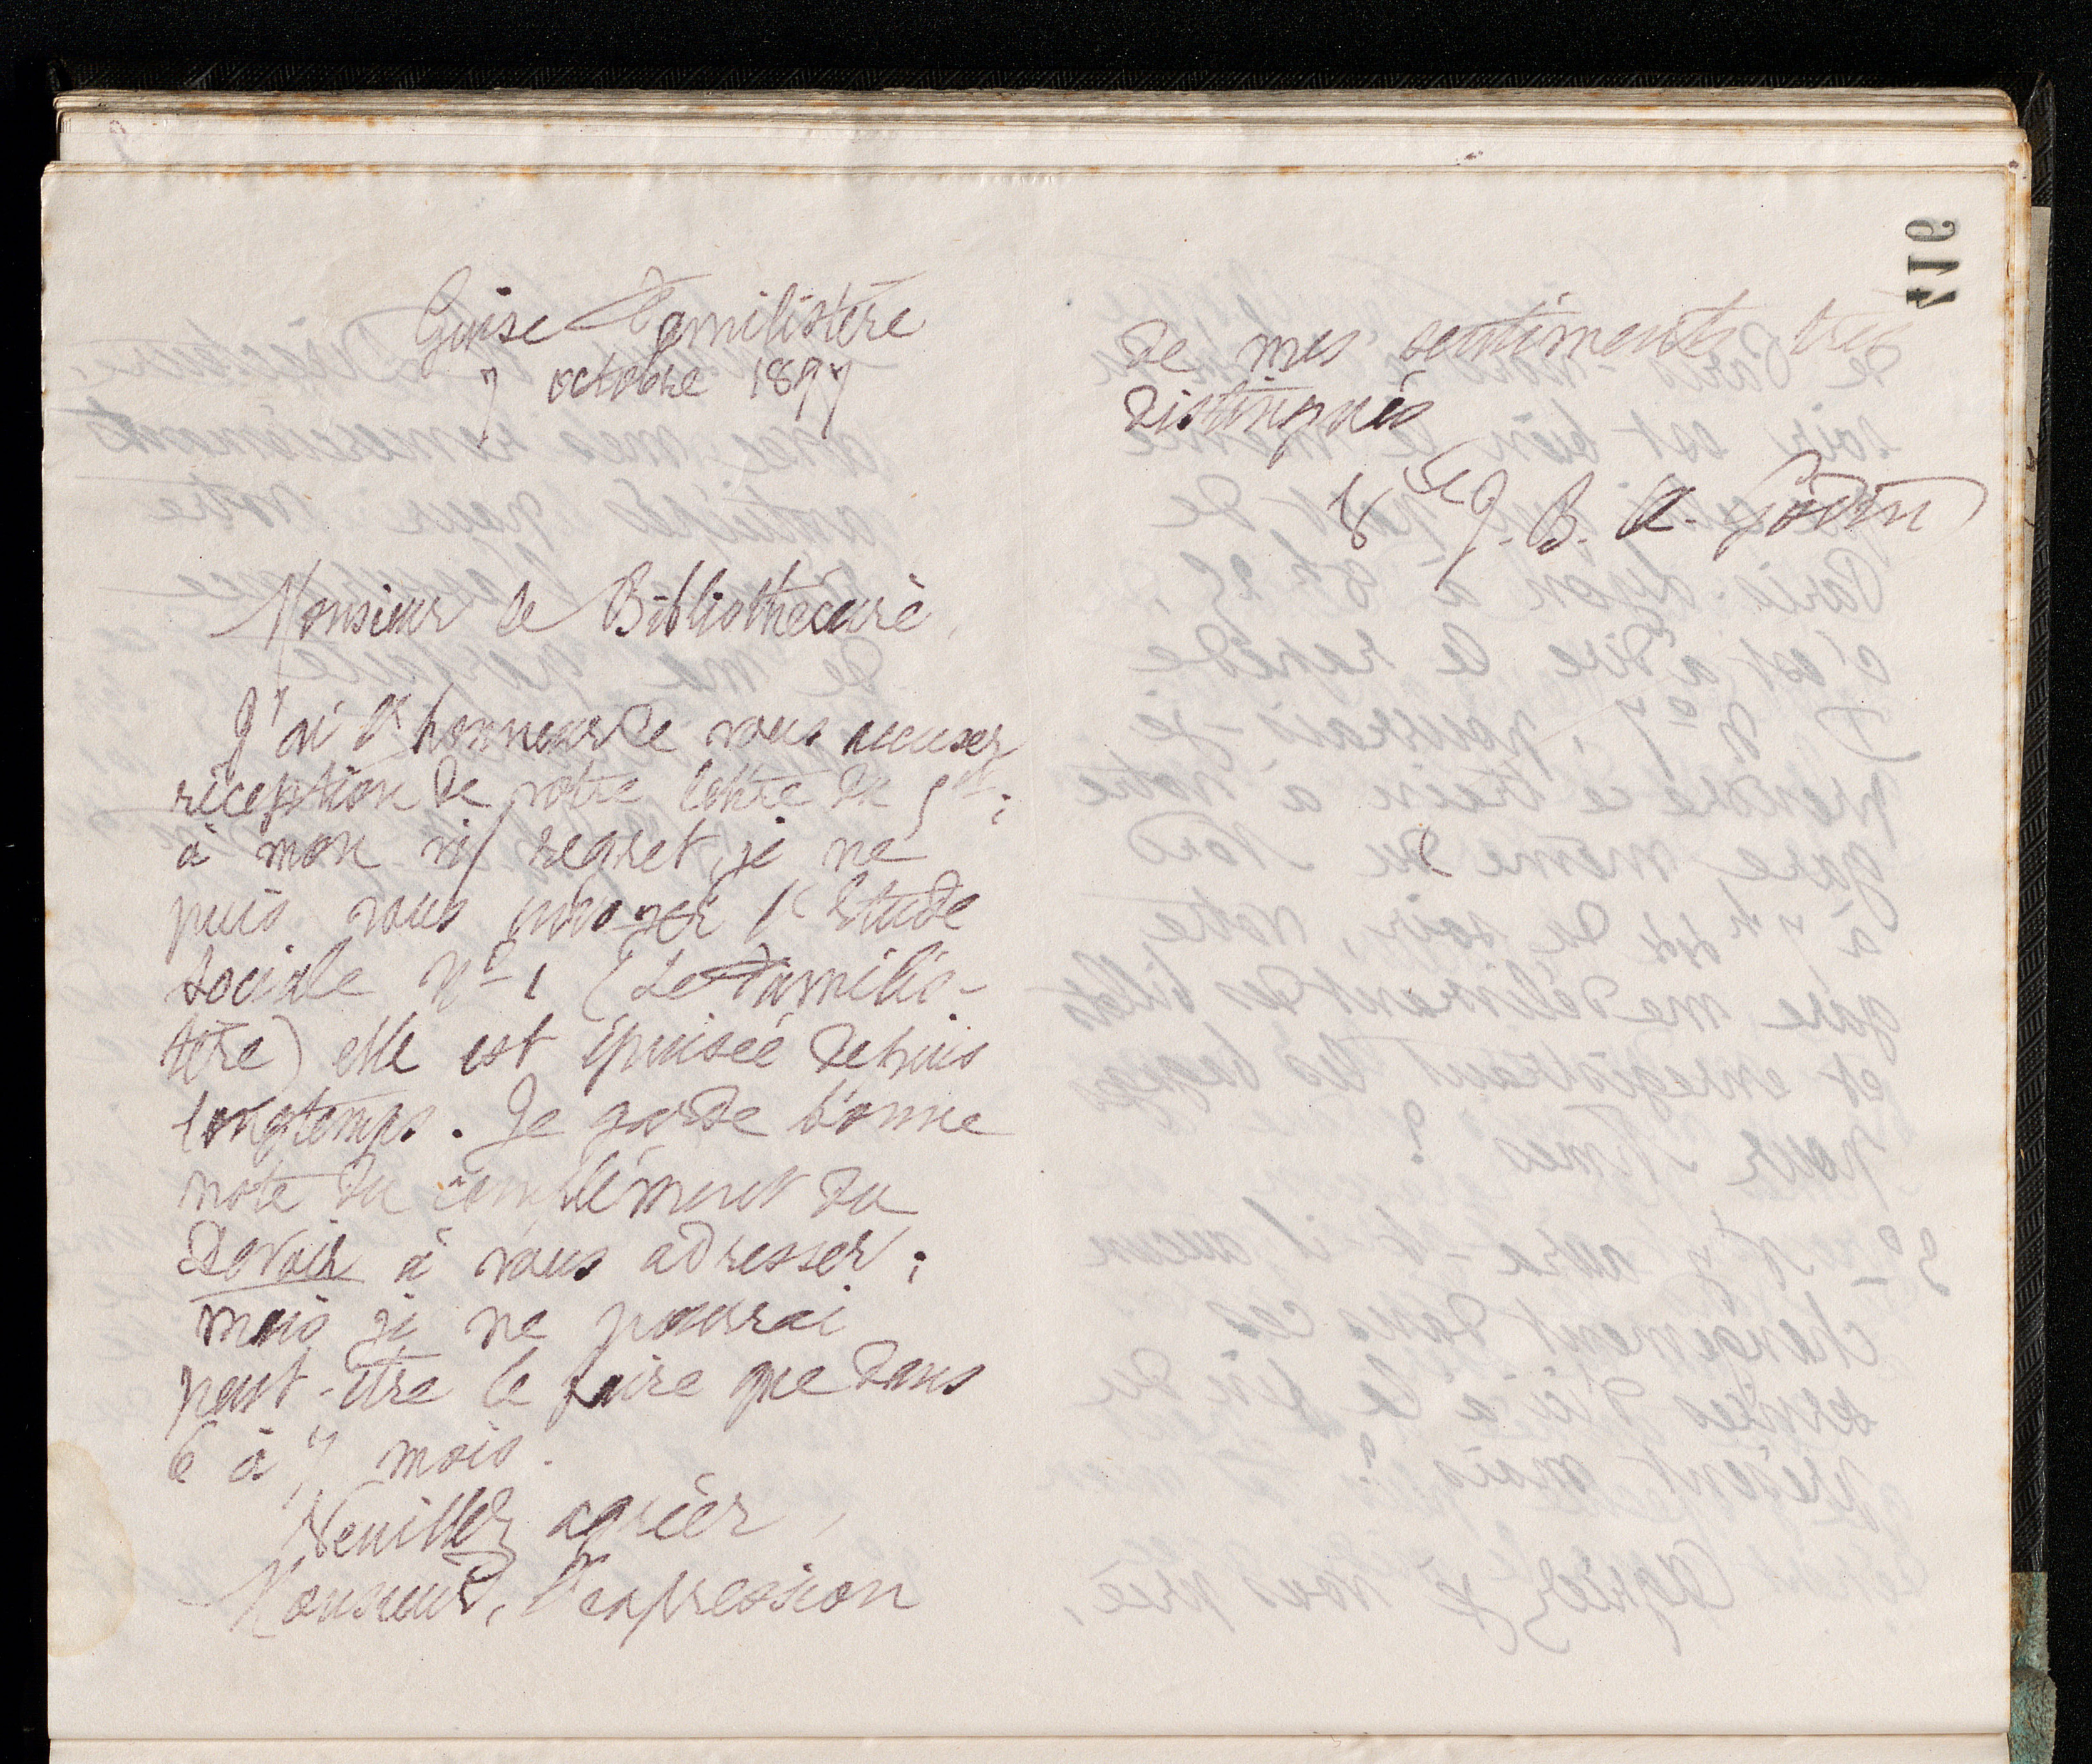 Guise Familistère
7 octobre 1897
Monsieur le Bibliothécaire,
J'ai l'honneur de vous accuser
réception de votre lettre du 5 ct;
à mon vif regret, je ne
puis vous envoyer l'Etude
Sociale No 1 (Le Familis-
tère) elle est épuisée depuis
longtemps. Je garde bonne
note du complément du
Devoir à vous adresser;
mais je ne pourrai
peut-être le faire que dans
6 à 7 mois.
Veuillez agréer,
Monsieur, l'expression
de mes sentiments très
distingués
Ve J. B. A. Godin
417